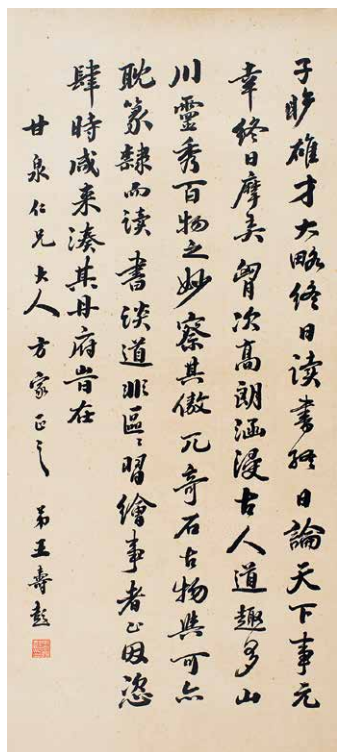 子雄才大略终日读书終日論天下事元
幸終日摩胷次高朗涵浸古人道趣多山
川靈秀百物之妙察其傲兀奇石古物無可亦
耽篆隸而读書谈道非區〻習繪事者因恣
肆時咸来湊其丹府皆在
甘泉仁兄大人方家正之 弟王壽彭